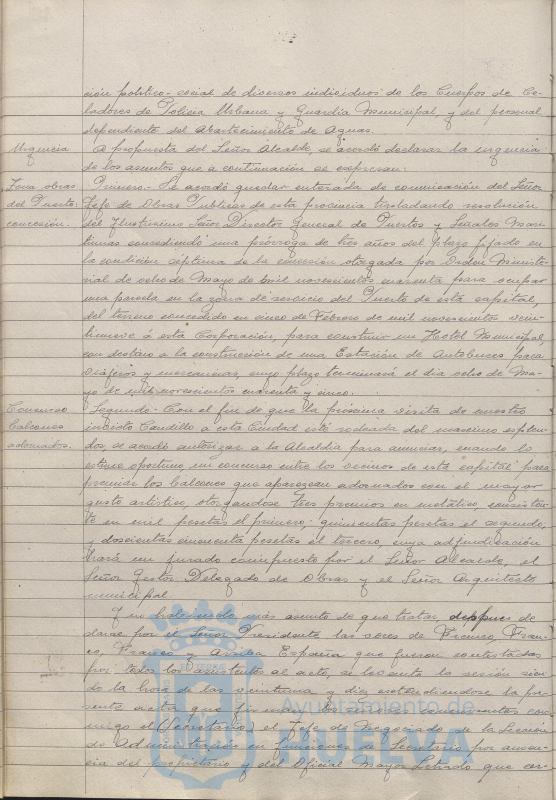 ción político-social de diversos individuos de los Cuerpos de Ce-
ladores de Policía Urbana y Guardia Municipal y del personal
dependiente del Abastecimiento de Aguas.
Urgencia
A propuesta del Señor Alcalde, se acordó declarar la urgencia
de los asuntos que a continuación se expresan:
Zona obras
del Puerto.
concesión.
Primero.- Se acordó quedar enterada de comunicación del Señor
Jefe de Obras Públicas de esta provincia trasladando resolución
del Ilustrísimo Señor Director General de Puertos y Señales Marí-
timas concediendo una prórroga de tres años del plazo fijado en
la condición séptima de la concesión otorgada por Orden Ministe-
rial de ocho de Mayo de mil novecientos cuarenta para ocupar
una parcela en la zona de servicio del Puerto de esta capital,
del terreno concedido en cinco de Febrero de mil novecientos vein-
tinueve á esta Corporación, para construir un Hostel Municipal,
con destino a la construcción de una Estación de Autobuses para
viajeros y mercancías, cuyo plazo terminará el día ocho de Ma-
yo de mil novecientos cuarenta y cinco.
Concurso
Balcones
adornados.
Segundo.- Con el fin de que la próxima visita de nuestro
invicto Caudillo a esta Ciudad esté rodeada del maximo esplen-
dor, se acordó autorizar a la Alcaldía para anunciar, cuando lo
estime oportuno, un concurso entre los vecinos de esta capital para
premiar los balcones que aparezcan adornados con el mayor
gusto artístico, otorgandose tres premios en metálico, consisten-
te en mil pesetas el primero; quinientas pesetas el segundo,
y doscientas cincuenta pesetas el tercero, cuya adjudicación
hará un jurado compuesto por el Señor Alcalde, el
Señor Gestor Delegado de Obras y el Señor Arquitecto
municipal.
Y no habiendo más asunto de que tratar, despues de
darse por el Señor Presidente las voces de Franco, Fran-
co, Franco y Arriba España que fueron contestadas
por todos los asistentes al acto, se levanta la sesión sien-
do la hora de las veintiuna y diez, extendiendose la pre-
sente acta que firman los Señores concurrentes con-
migo el (Secretario) el Jefe de Negociado de la Sección
de Administración en funciones de Secretario por ausen-
cia del propietario y del Oficial Mayor Letrado que cer-
Ayuntamiento de
HUELVA